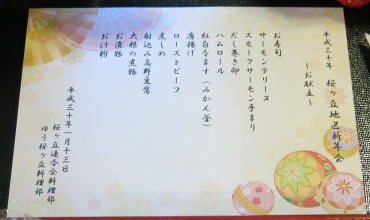 平成三十年 桜ヶ丘地区新年会
～お献立～
お寿司
サーモンテリーヌ
スモークサーモン手まり
だし巻き卵
ハムロール
紅白なます（みかん釜）
唐揚げ
ローストビーフ
煮しめ
射込み高野豆腐
大根の煮物
お漬物
お汁粉
平成三十年一月十三日
桜ヶ丘連合会料理部
ゆう桜ヶ丘料理部